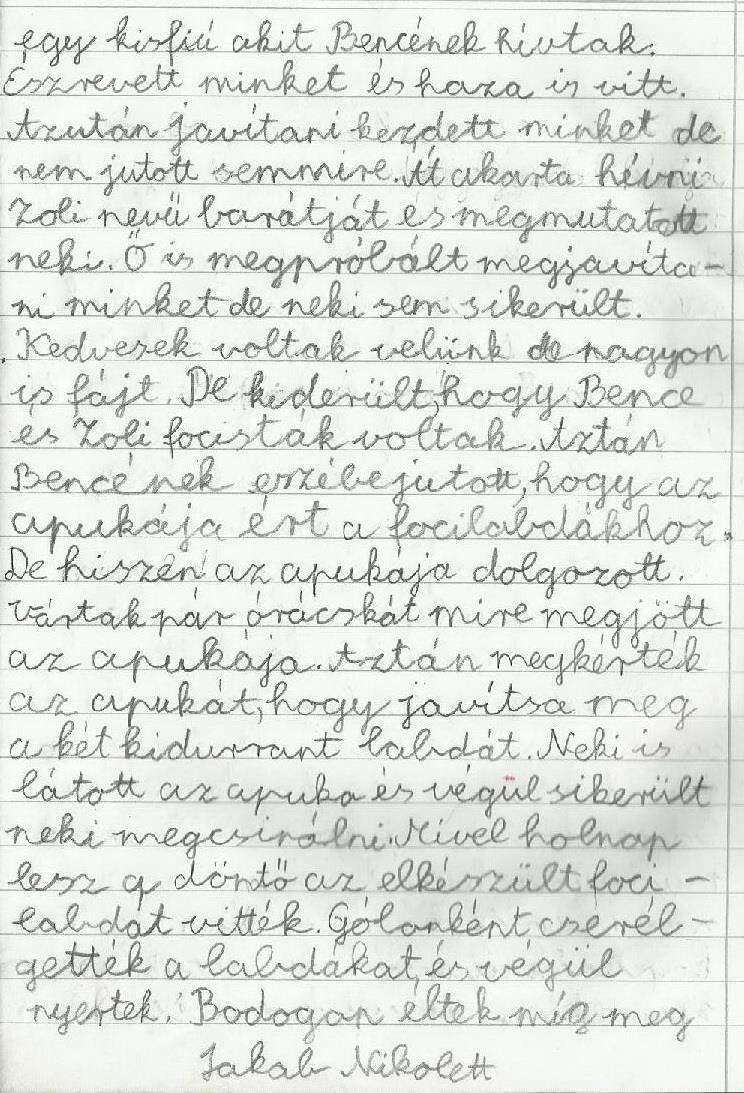 egy kisfiú akit Bencének hívtak.
Észrevett minket és haza is vitt.
Azután javítani kezdett minket de
nem jutott semmire. Át akarta hévni
Zoli nevű barátját és megmutatott
neki. Ő is megpróbált megjavíta-
ni minket de neki sem sikerült.
Kedvesek voltak velünk de nagyon
is fájt. De kiderült, hogy Bence
és Zoli focisták voltak. Aztán
Bencének eszébejutott, hogy az
apukája ért a focilabdákhoz.
De hiszen az apukája dolgozott.
Vártak pár órácskát mire megjött
az apukája. Aztán megkérték
az apukát, hogy javítsa meg
a két kidurrant labdát. Neki is
látott az apuka és végül sikerült
neki megcsinálni. Mivel holnap
lesz a döntő az elkészült foci-
labdát vitték. Gólonként cserél-
gették a labdákat, és végül
nyertek. Bodogan éltek míg meg
Jakab Nikolett